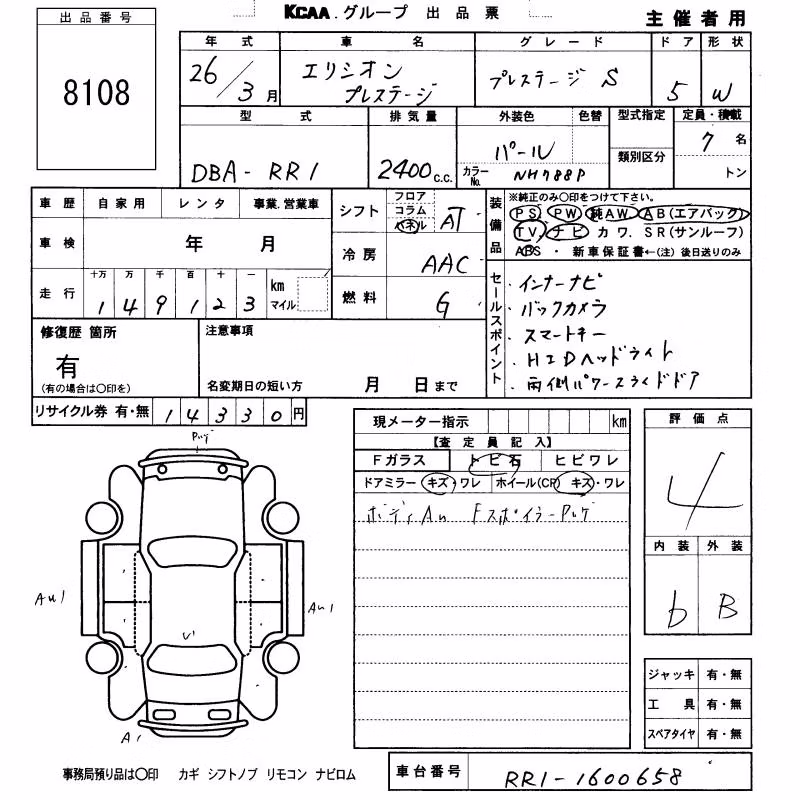 KCAA.グループ 出品票
主催者用
出品番号
8108
年式 車名 グレード ドア 形状
26/3月 エリシオン プレステージ プレステージ S 5 W
型式 排気量 外装色 色替 型式指定 定員・積載
DBA-RR1 2400c.c. パール 7名
カラーNo. NH788P 類別区分 トン
車歴 自家用 レンタ 事業.営業車
車検 年 月
走行 十万 万 千 百 十 一 km マイル
1 4 9 1 2 3
シフト フロア コラム パネル AT
冷房 AAC
燃料 G
装備品
※純正のみ〇印をつけて下さい。
PS PW 純AW AB(エアバック)
TV ナビ カワ. SR(サンルーフ)
ABS ・ 新車保証書←(注) 後日送りのみ
セールスポイント
・インナーナビ
・バックカメラ
・スマートキー
・HIDヘッドライト
・両側パワースライドドア
修復歴 箇所
有
(有の場合は〇印を)
注意事項
名変期日の短い方 月 日まで
リサイクル券 有・無 14330円
現メーター指示 km
【査定員記入】
Fガラス トビ石 ヒビワレ
ドアミラー キズ・ワレ ホイール(CP) キズ・ワレ
ボディAu Fスポイラーアレゲ
評価点
4
内装 外装
b B
アレゲ
AU1
AU1
V1
A1
ジャッキ 有・無
工具 有・無
スペアタイヤ 有・無
事務局預り品は〇印 カギ シフトノブ リモコン ナビロム
車台番号 RR1-1600658